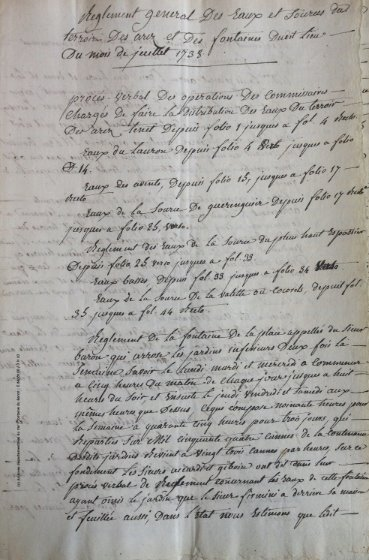 Reglement general Des Eaux et sources du
terroir Des arcz et Des fontaines Dudit lieu
Du mois de juillet 1738
procès verbal Des operations Des Commissaires
chargés de faire la Distribution Des Eaux Du terroir
Des arcz Depuis folio 1 jusques a fol. 4 verso
Eaux du Lauron Depuis folio 4 verso jusques a folio
14.
Eaux des Depuis folio 15, jusques a folio 17
verso
Eaux de la Source De Depuis folio 17 verso
jusques a folio 25, verso.
Reglement des Eaux de la Source du plus haut
Depuis folio 25 verso jusques a fol. 33
Eaux basses Depuis fol 33 jusques a folio 34 verso
Eaux de la Source De la valette ou Depuis fol.
35 jusques a fol. 44 verso.
Reglement De la fontaine De la place appellée du
baron qui arrose les jardins inferieurs Deux fois la
Semaine Savoir le lundi mardi et mercredi a commencer
a cinq heures Du matin de chaque jour jusques a huit
heures du Soir, et ensuite le jeudi Vendredi et Samedi aux
mêmes heures que Dessus, Ce qui compose nonante heures pour
la Semaine a quarante cinq heures pour trois jours, qui
reparties Sur Mil cinquante quatre cannes De la contenance
Desdits jardins revient a Vingt trois cannes par heure, Sur ce
fondement les Sieurs et giboin ont dit dans leur
procès verbal de Reglement concernant les Eaux de cette fontaine
ayant omis le jardin que le Sieur a derrière Sa maison
et aussi, Dans l'Etat nous